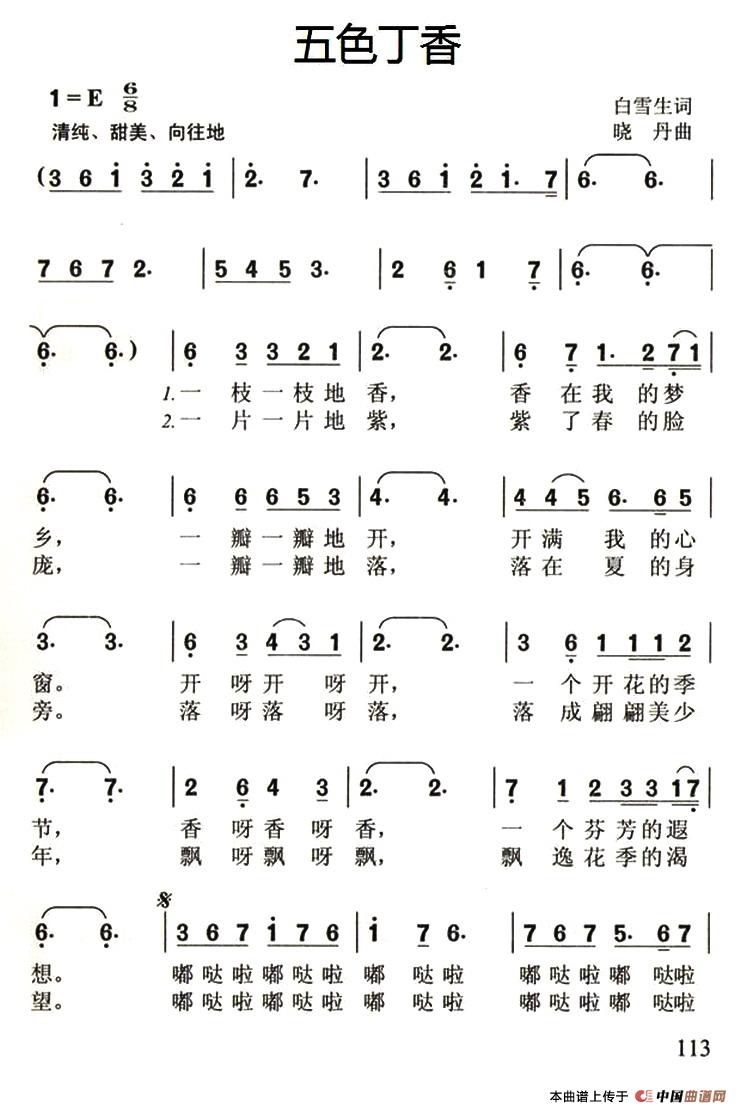 五色丁香
1=E 6/8
白雪生词
清纯、甜美、向往地
晓 丹曲
(3 6 1 3 2 1 | 2. 7. | 3 6 1 2 1. 7 | 6. 6. |
7 6 7 2. | 5 4 5 3. | 2 6 1 7 | 6. 6. |
6. 6.) | 6 3 3 2 1 | 2. 2. | 6 7 1. 2 7 1 |
1.一 枝 一 枝 地 香, 香 在 我 的 梦
2.一 片 一 片 地 紫, 紫 了 春 的 脸
6. 6. | 6 6 6 5 3 | 4. 4. | 4 4 5 6. 6 5 |
乡, 一 瓣 一 瓣 地 开, 开 满 我 的 心
庞, 一 瓣 一 瓣 地 落, 落 在 夏 的 身
3. 3. | 6 3 4 3 1 | 2. 2. | 3 6 1 1 1 2 |
窗。 开 呀 开 呀 开, 一 个 开 花 的 季
旁。 落 呀 落 呀 落, 落 成 翩 翩 美 少
7. 7. | 2 6 4 3 | 2. 2. | 7 1 2 3 3 1 7 |
节, 香 呀 香 呀 香, 一 个 芬 芳 的 遐
年, 飘 呀 飘 呀 飘, 飘 逸 花 季 的 渴
6. 6. | 3 6 7 1 7 6 | 1 7 6. | 7 6 7 5. 6 7 |
想。 嘟 哒 啦 嘟 哒 啦 嘟 哒 啦 嘟 哒 啦 嘟 哒 啦
望。 嘟 哒 啦 嘟 哒 啦 嘟 哒 啦 嘟 哒 啦 嘟 哒 啦
113
本曲谱上传于 中国曲谱网